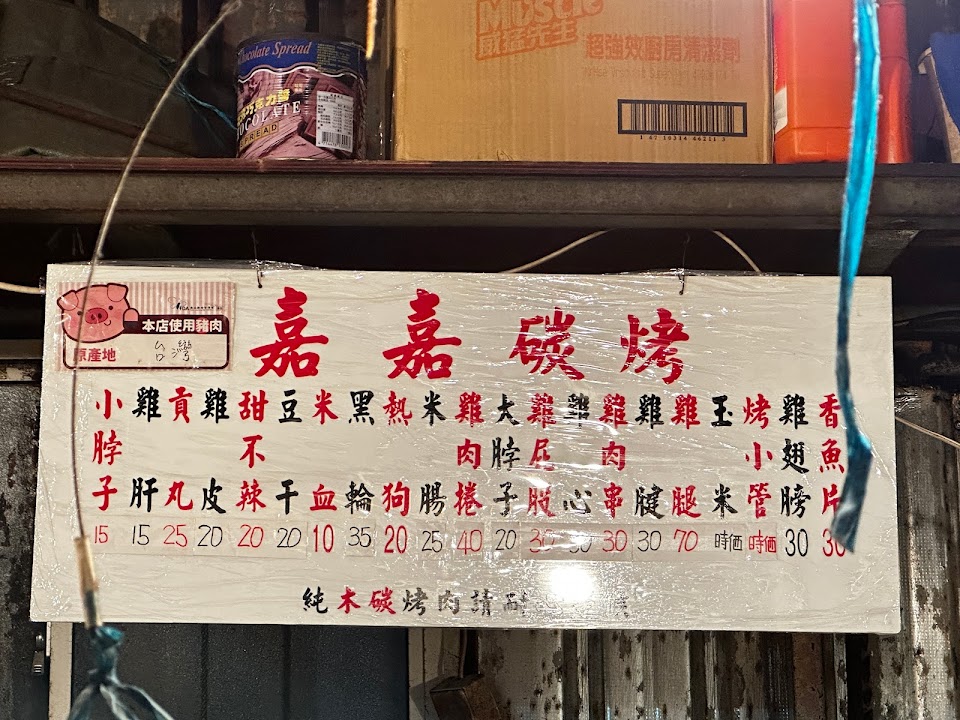 Chocolate Spread
巧克力醬
CHOCOLATE
SPREAD
威猛先生
超強效廚房清潔劑
本店使用豬肉
原產地 台灣
嘉嘉碳烤
小脖子 15
雞肝 15
貢丸 25
雞皮 20
甜不辣 20
豆干 20
米血 10
黑輪 35
熱狗 20
米腸 25
雞肉捲 40
大脖子 20
雞屁股 30
雞心 30
雞肉串 30
雞腱 30
雞腿 70
玉米 時価
烤小管 時価
雞翅膀 30
香魚片 30
純木碳烤肉請耐